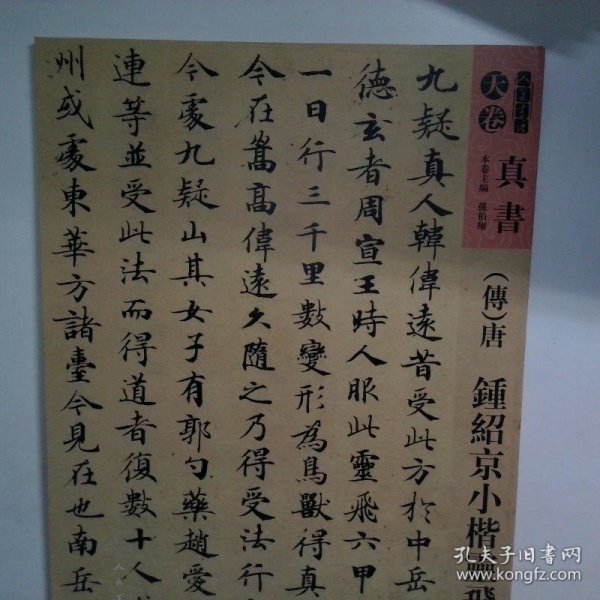 大卷
真書
本卷主編 孫伯翔
(傳)唐 鍾紹京小楷靈飛
九疑真人韓偉遠昔受此方於中岳
德玄者周宣王時人服此靈飛六甲
一日行三千里數變形為鳥獸得真
今在嵩高偉遠久隨之乃得受法行
今處九疑山其女子有郭勺藥趙愛
連等並受此法而得道者復數十人
州或處東華方諸臺今見在也南岳
孔夫子旧书网
www.kongfz.com